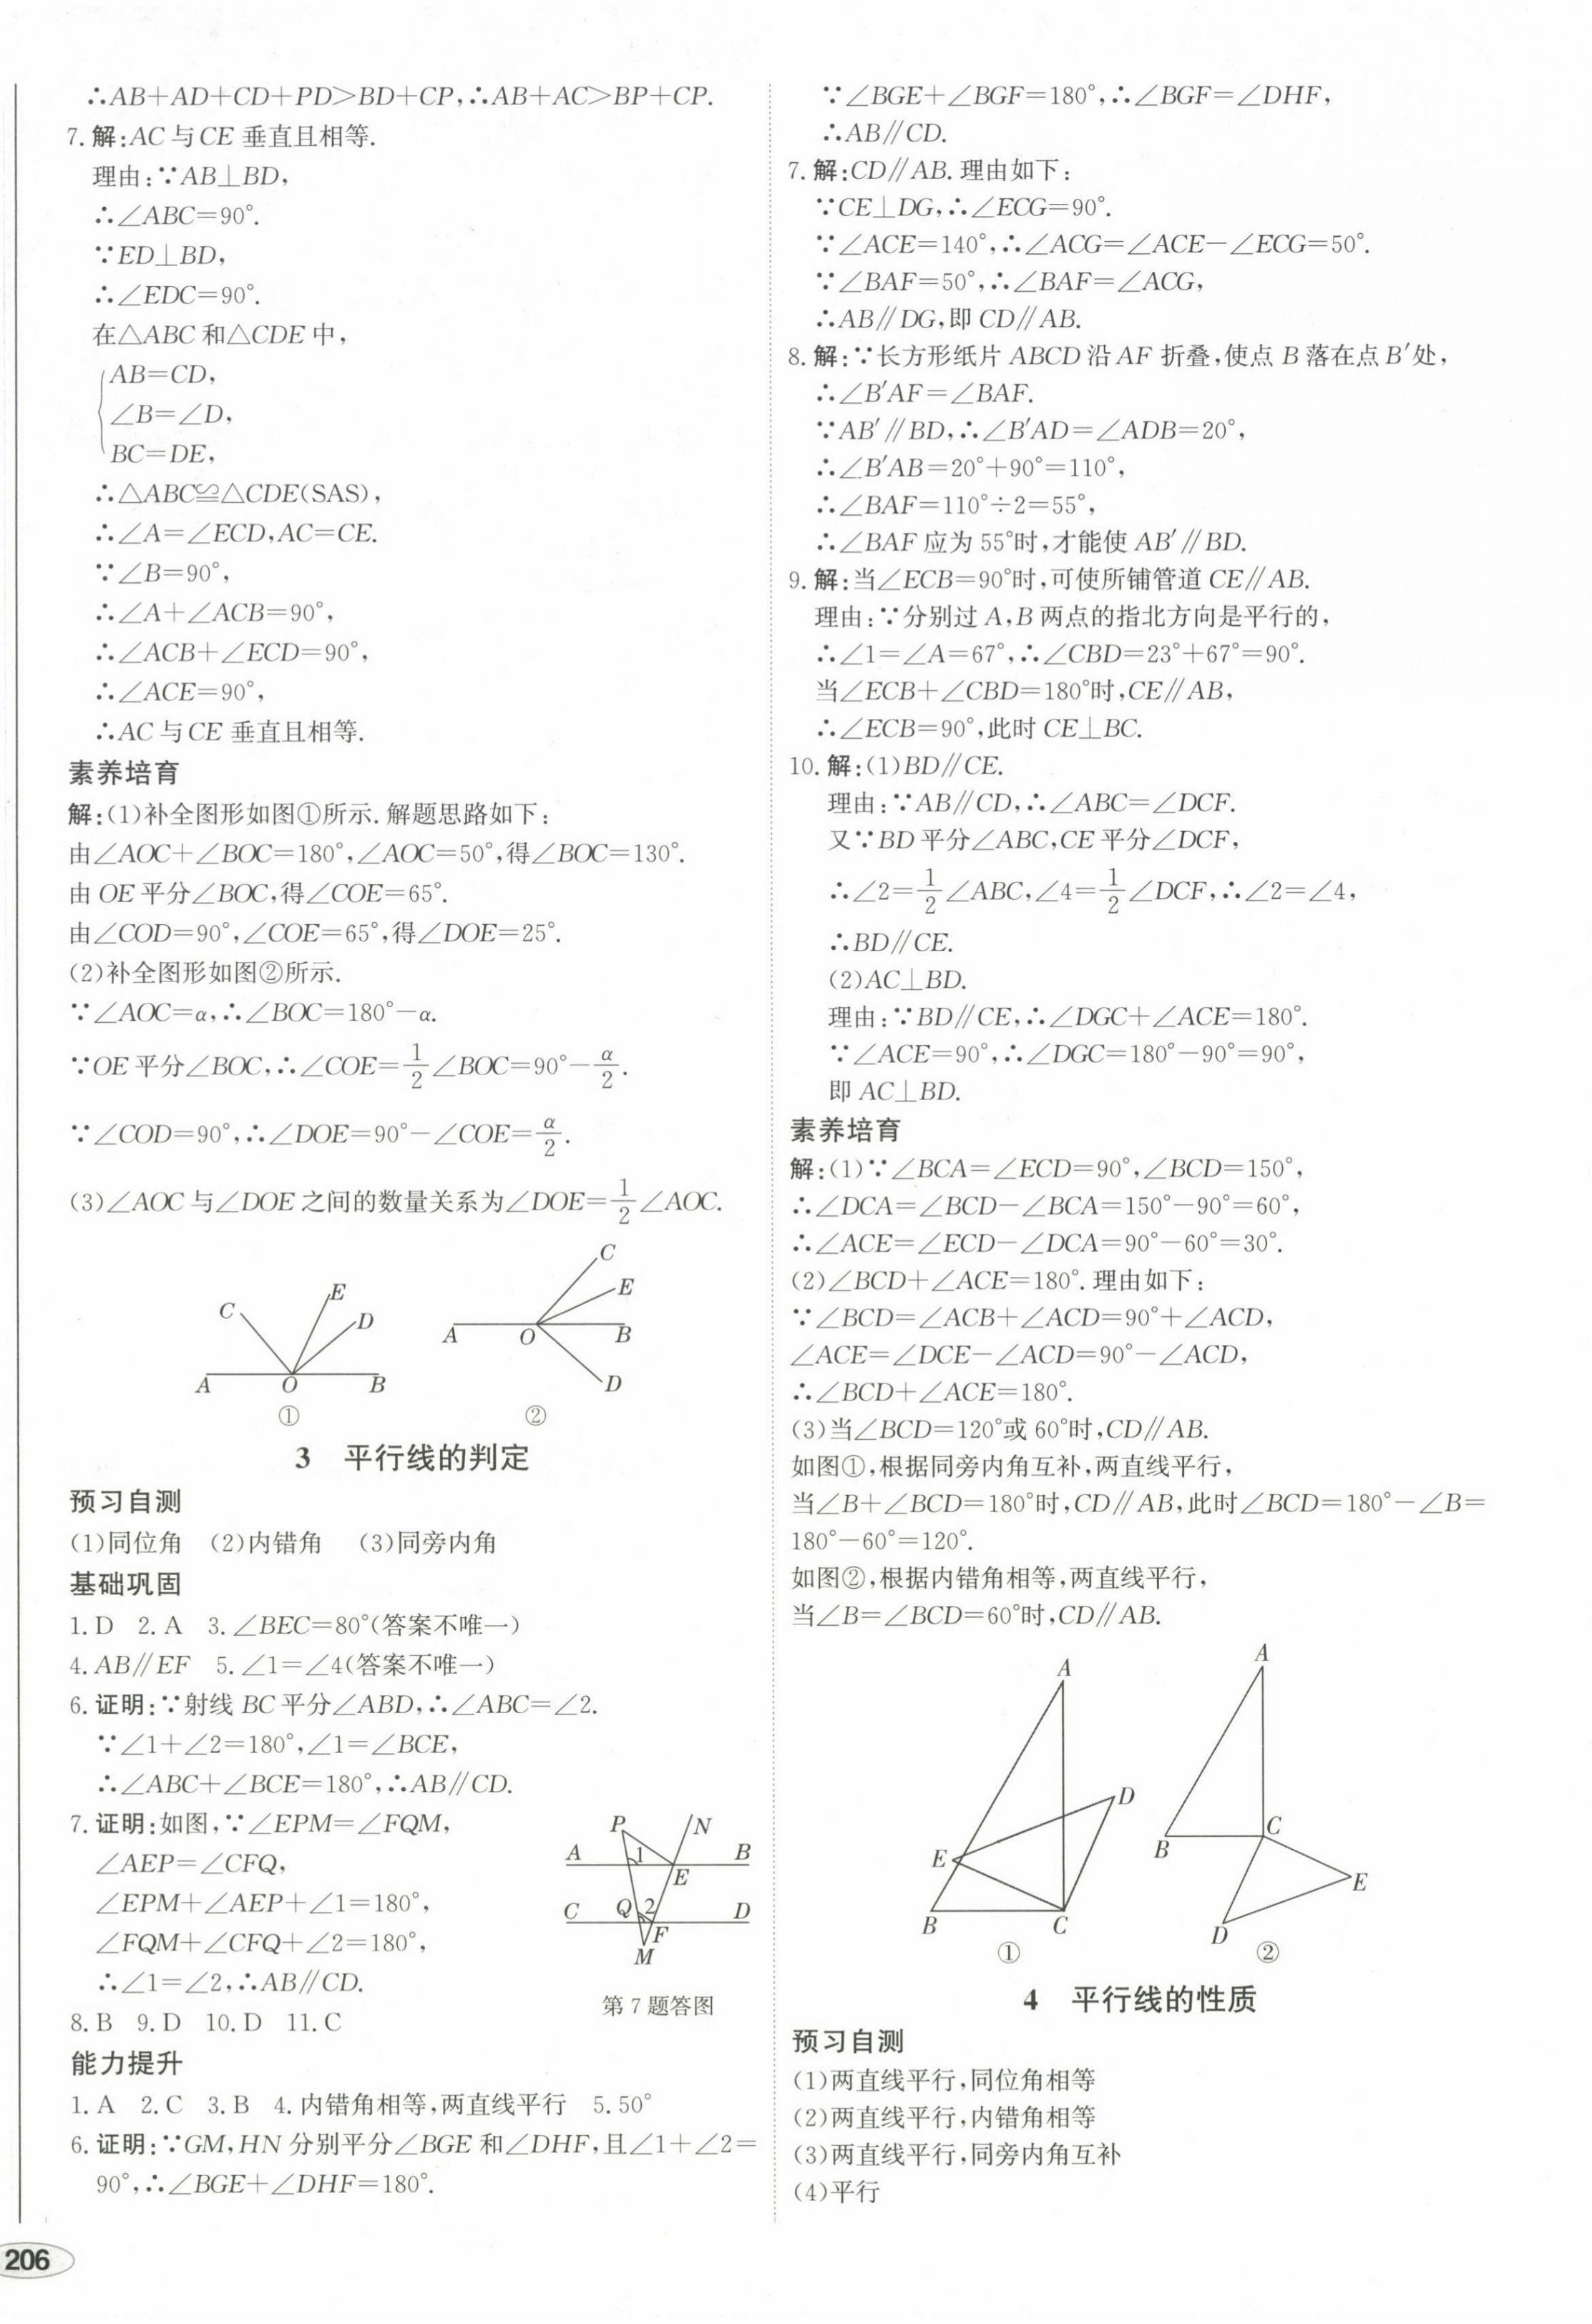 ∴AB+AD+CD+PD>BD+CP,∴AB+AC>BP+CP.
7.解:AC与CE 垂直且相等.
理由:∵AB⊥BD,
∴∠ABC=90°.
∵ED⊥BD,
∴∠EDC=90°.
在△ABC和△CDE中,
AB=CD,
∠B=∠D,
BC=DE,
∴△ABC≌△CDE(SAS),
∴∠A=∠ECD,AC=CE.
∵∠B=90°,
∴∠A+∠ACB=90°,
∴∠ACB+∠ECD=90°,
∴∠ACE=90°,
∴AC与CE 垂直且相等.
素养培育
解:(1)补全图形如图①所示.解题思路如下:
由∠AOC+∠BOC=180°,∠AOC=50°,得∠BOC=130°.
由OE平分∠BOC,得∠COE=65°.
由∠COD=90°,∠COE=65°,得∠DOE=25°.
(2)补全图形如图②所示.
∵∠AOC=α,∴∠BOC=180°-α.
∵OE平分∠BOC,∴∠COE=1/2∠BOC=90°-α/2.
∵∠COD=90°,∴∠DOE=90°-∠COE=α/2.
(3)∠AOC与∠DOE之间的数量关系为∠DOE=1/2∠AOC.
C E D A O B
①
C E A O B D
②
3 平行线的判定
预习自测
(1)同位角 (2)内错角 (3)同旁内角
基础巩固
1.D 2.A 3.∠BEC=80°(答案不唯一)
4.AB∥EF 5.∠1=∠4(答案不唯一)
6.证明:∵射线BC平分∠ABD,∴∠ABC=∠2.
∵∠1+∠2=180°,∠1=∠BCE,
∴∠ABC+∠BCE=180°,∴AB∥CD.
7.证明:如图,∵∠EPM=∠FQM,
∠AEP=∠CFQ,
∠EPM+∠AEP+∠1=180°,
∠FQM+∠CFQ+∠2=180°,
∴∠1=∠2,∴AB∥CD.
P N
A 1 B
E
C Q 2 D
F
M
第7题答图
8.B 9.D 10.D 11.C
能力提升
1.A 2.C 3.B 4.内错角相等,两直线平行 5.50°
6.证明:∵GM,HN分别平分∠BGE和∠DHF,且∠1+∠2=
90°,∴∠BGE+∠DHF=180°.
206
∵∠BGE+∠BGF=180°,∴∠BGF=∠DHF,
∴AB∥CD.
7.解:CD∥AB.理由如下:
∵CE⊥DG,∴∠ECG=90°.
∵∠ACE=140°,∴∠ACG=∠ACE-∠ECG=50°.
∵∠BAF=50°,∴∠BAF=∠ACG,
∴AB∥DG,即CD∥AB.
8.解:∵长方形纸片ABCD沿AF折叠,使点B落在点B′处,
∴∠B′AF=∠BAF.
∵AB′∥BD,∴∠B′AD=∠ADB=20°,
∴∠B′AB=20°+90°=110°,
∴∠BAF=110°÷2=55°,
∴∠BAF应为55°时,才能使AB′∥BD.
9.解:当∠ECB=90°时,可使所铺管道CE∥AB.
理由:∵分别过A,B两点的指北方向是平行的,
∴∠1=∠A=67°,∴∠CBD=23°+67°=90°.
当∠ECB+∠CBD=180°时,CE∥AB,
∴∠ECB=90°,此时CE⊥BC.
10.解:(1)BD∥CE.
理由:∵AB∥CD,∴∠ABC=∠DCF.
又∵BD平分∠ABC,CE平分∠DCF,
∴∠2=1/2∠ABC,∠4=1/2∠DCF,∴∠2=∠4,
∴BD∥CE.
(2)AC⊥BD.
理由:∵BD∥CE,∴∠DGC+∠ACE=180°.
∵∠ACE=90°,∴∠DGC=180°-90°=90°,
即AC⊥BD.
素养培育
解:(1)∵∠BCA=∠ECD=90°,∠BCD=150°,
∴∠DCA=∠BCD-∠BCA=150°-90°=60°,
∴∠ACE=∠ECD-∠DCA=90°-60°=30°.
(2)∠BCD+∠ACE=180°.理由如下:
∵∠BCD=∠ACB+∠ACD=90°+∠ACD,
∠ACE=∠DCE-∠ACD=90°-∠ACD,
∴∠BCD+∠ACE=180°.
(3)当∠BCD=120°或60°时,CD∥AB.
如图①,根据同旁内角互补,两直线平行,
当∠B+∠BCD=180°时,CD∥AB,此时∠BCD=180°-∠B=
180°-60°=120°.
如图②,根据内错角相等,两直线平行,
当∠B=∠BCD=60°时,CD∥AB.
A D E B C
①
A B C E D
②
4 平行线的性质
预习自测
(1)两直线平行,同位角相等
(2)两直线平行,内错角相等
(3)两直线平行,同旁内角互补
(4)平行